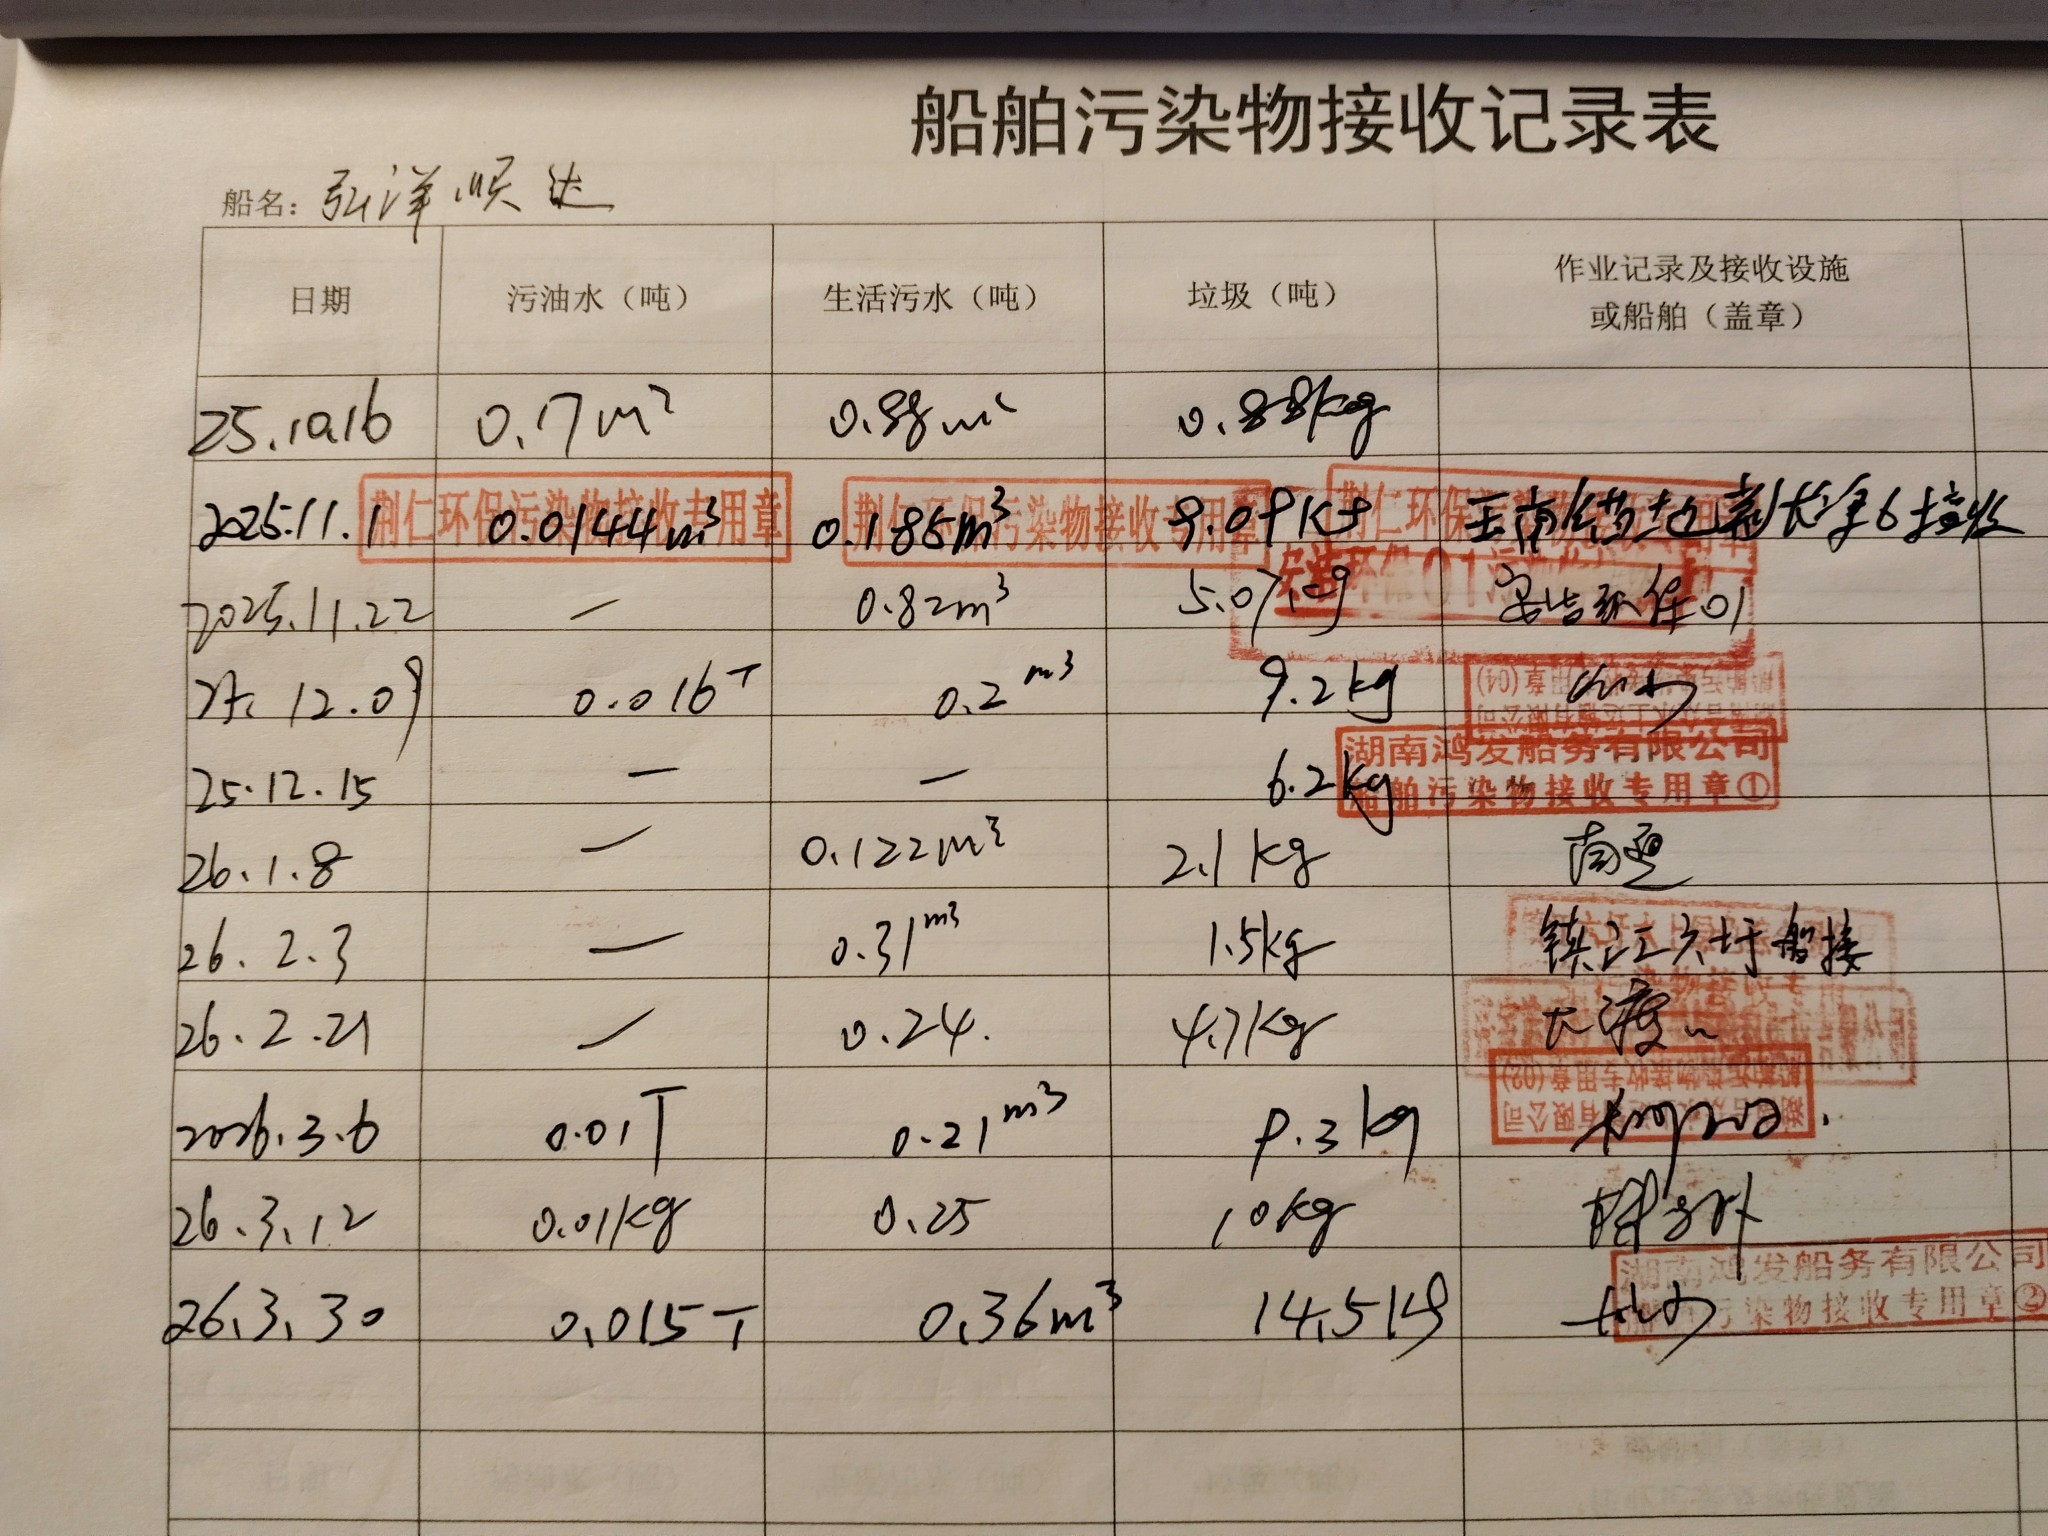 船舶污染物接收记录表
船名：弘洋顺达
日期 污油水（吨） 生活污水（吨） 垃圾（吨） 作业记录及接收设施
或船舶（盖章）
25.10.16 0.17m² 0.88m² 0.88kg
荆仁环保污染物接收专用章 荆仁环保污染物接收专用章 荆仁环保
2025.11.1 0.0144m³ 0.185m³ 9.09kg 接收
2025.11.22 — 0.82m³ 5.07kg 环保01
12.09 0.016T 0.2m³ 9.2kg
专用章(04)
湖南鸿发船务有限公司
船舶污染物接收专用章①
25.12.15 — — 6.2kg
26.1.8 — 0.122m³ 2.1kg
26.2.3 — 0.31m³ 1.5kg 镇江六圩船接
26.2.21 — 0.24. 4.7kg 大渡
船舶污染物接收专用章(02)
2026.3.6 0.01T 0.21m³ 9.3kg
26.3.12 0.01kg 0.25 10kg
湖南鸿发船务有限公司
船舶污染物接收专用章②
26.3.30 0.015T 0.36m³ 14.5kg